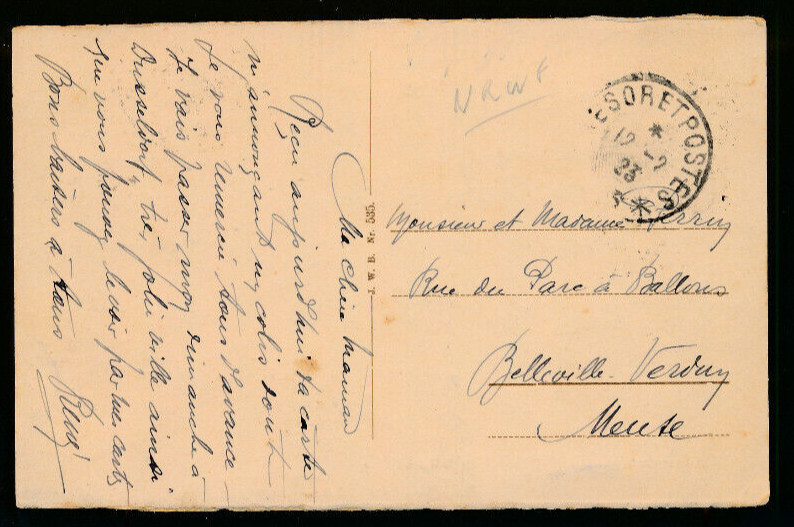 Ma chère Maman
Reçu aujourd'hui ta carte
m'annonçant un colis dont
je vous remercie tous d'avance
Je vais passer mon dimanche à
Dusseldorf, très jolie ville ainsi
que vous pouvez le voir par les cartes
Bons baisers à tous
René
J. W. B. Nr. 535.
NRWF
TRESOR ET POSTES
12 - 2
23
Monsieur et Madame
Rue du Parc à Ballons
Belleville-Verdun
Meuse